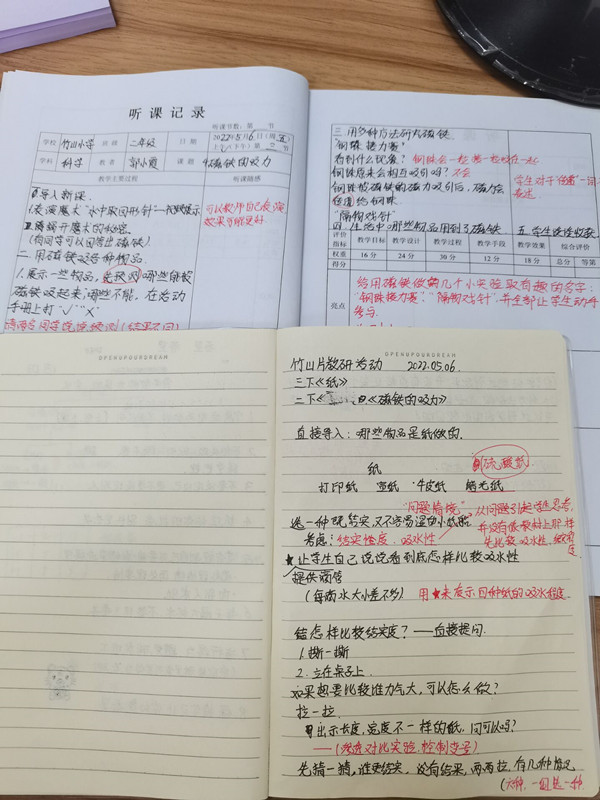 听课记录
听课节数：第 节
学校 竹山小学 班级 二年级 日期 2022年5月6日(周五)
(上午/下午)第二节
学科 科学 教者 郭小霞 课题 4.磁铁的吸力
教学主要过程 听课随感
导入新课
1.表演魔术"水中取回形针"
2.揭开魔术的秘密
可以教师自己表演
效果可能更好
二.用磁铁吸各种物品.
1.展示一些物品,先预测哪些能被
磁铁吸起来,哪些不能,在活动
手册上打"√""X"
三.用多种方法研究磁铁
"钢珠接力赛"
看到什么现象? 钢珠会一粒接一粒吸在一起
钢珠原来会相互吸引吗? 不会
钢珠被磁铁的磁力吸引后,磁力会
传递给钢珠.
学生对于"传递"一词
表述
"隔物戏针"
四.生活中哪些物品用到了磁铁. 五.学生谈谈收获
评价指标 教学目标 教学设计 教学过程 教学手段 教学效果 综合评价
权重 16分 24分 24分 12分 18分 总分 等第
得分
亮点
给用磁铁做的几个小实验取有趣的名字:
"钢珠接力赛""隔物戏针",并全部让学生动手
参与.
OPENUPYOURDREAM
OPENUPYOURDREAM
竹山片教研活动 2022.05.06.
三下《纸》
二下《磁铁的吸力》
直接导入:哪些物品是纸做的.
纸 硫酸纸
打印纸 宣纸 牛皮纸 蜡光纸
"问题情境" 从问题引起学生思考,
选一种既结实,又不容易湿的小纸船
考虑:结实程度、吸水性
★让学生自己说说看到底怎样比较吸水性
提供滴管
(每滴水大小差不多) 用★来表示四种纸的吸水程度.
结怎样比较结实度?——直接提问.
1.撕一撕
2.立在桌子上.
如果想要比较谁力气大,可以怎么做?
拉一拉.
出示长度,宽度不一样的纸,问可以吗?
——(渗透对比实验,控制变量)
先猜一猜,谁更结实,没有结果,两两拉,有几种情况
(六种,一组选一种.